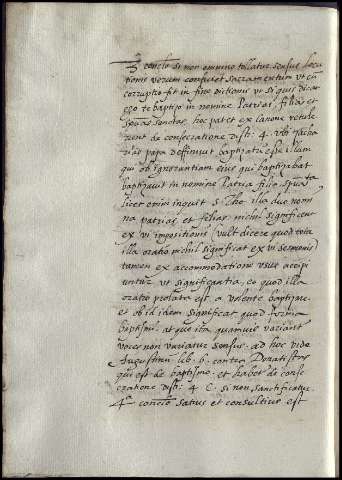 3ª conclo si non omnino tollatur sensus locu
tionis verum conficiet sacramentum ut cū
corruptio fit in fine dictionis ut si quis dicat
ego te baptizo in nomine Patrias, filias et
spūas sanctas, hoc patet ex canone retule
runt de consecratione disti. 4. ubi Zacha
rias papa deffinivit baptizatū esse illum
qui ob ignorantiam eius qui baptizabat
baptizavit in nomine Patria filia spūa sctā
licet enim inquit s. Tho illa duo nomi
na patrias et filias nichil significent
ex vi impositionis (vult dicere quod tota
illa oratio nichil significat ex vi sermonis)
tamen ex accommodatione usus accipi
untur ut significantia, eo quod illa
oratio prolata est a volente baptizare
et ob id idem significat quod forma
baptismi. atque ita quamvis variant
voces non variatur sensus. ad hoc vide
Augustinū lib. 6. contra Donatistas
qui est de baptismo. et habet de conse
cratione disti. 4 C. si non sanctificatur.
4ª concło satius et consultius est